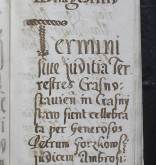 Termini
siue Juditia Ter
restres Crasno
stauien in Crasny
staw sient cellebra
ta per Generosos
Petrum Gorzkowsz
Judicem Ambrosi